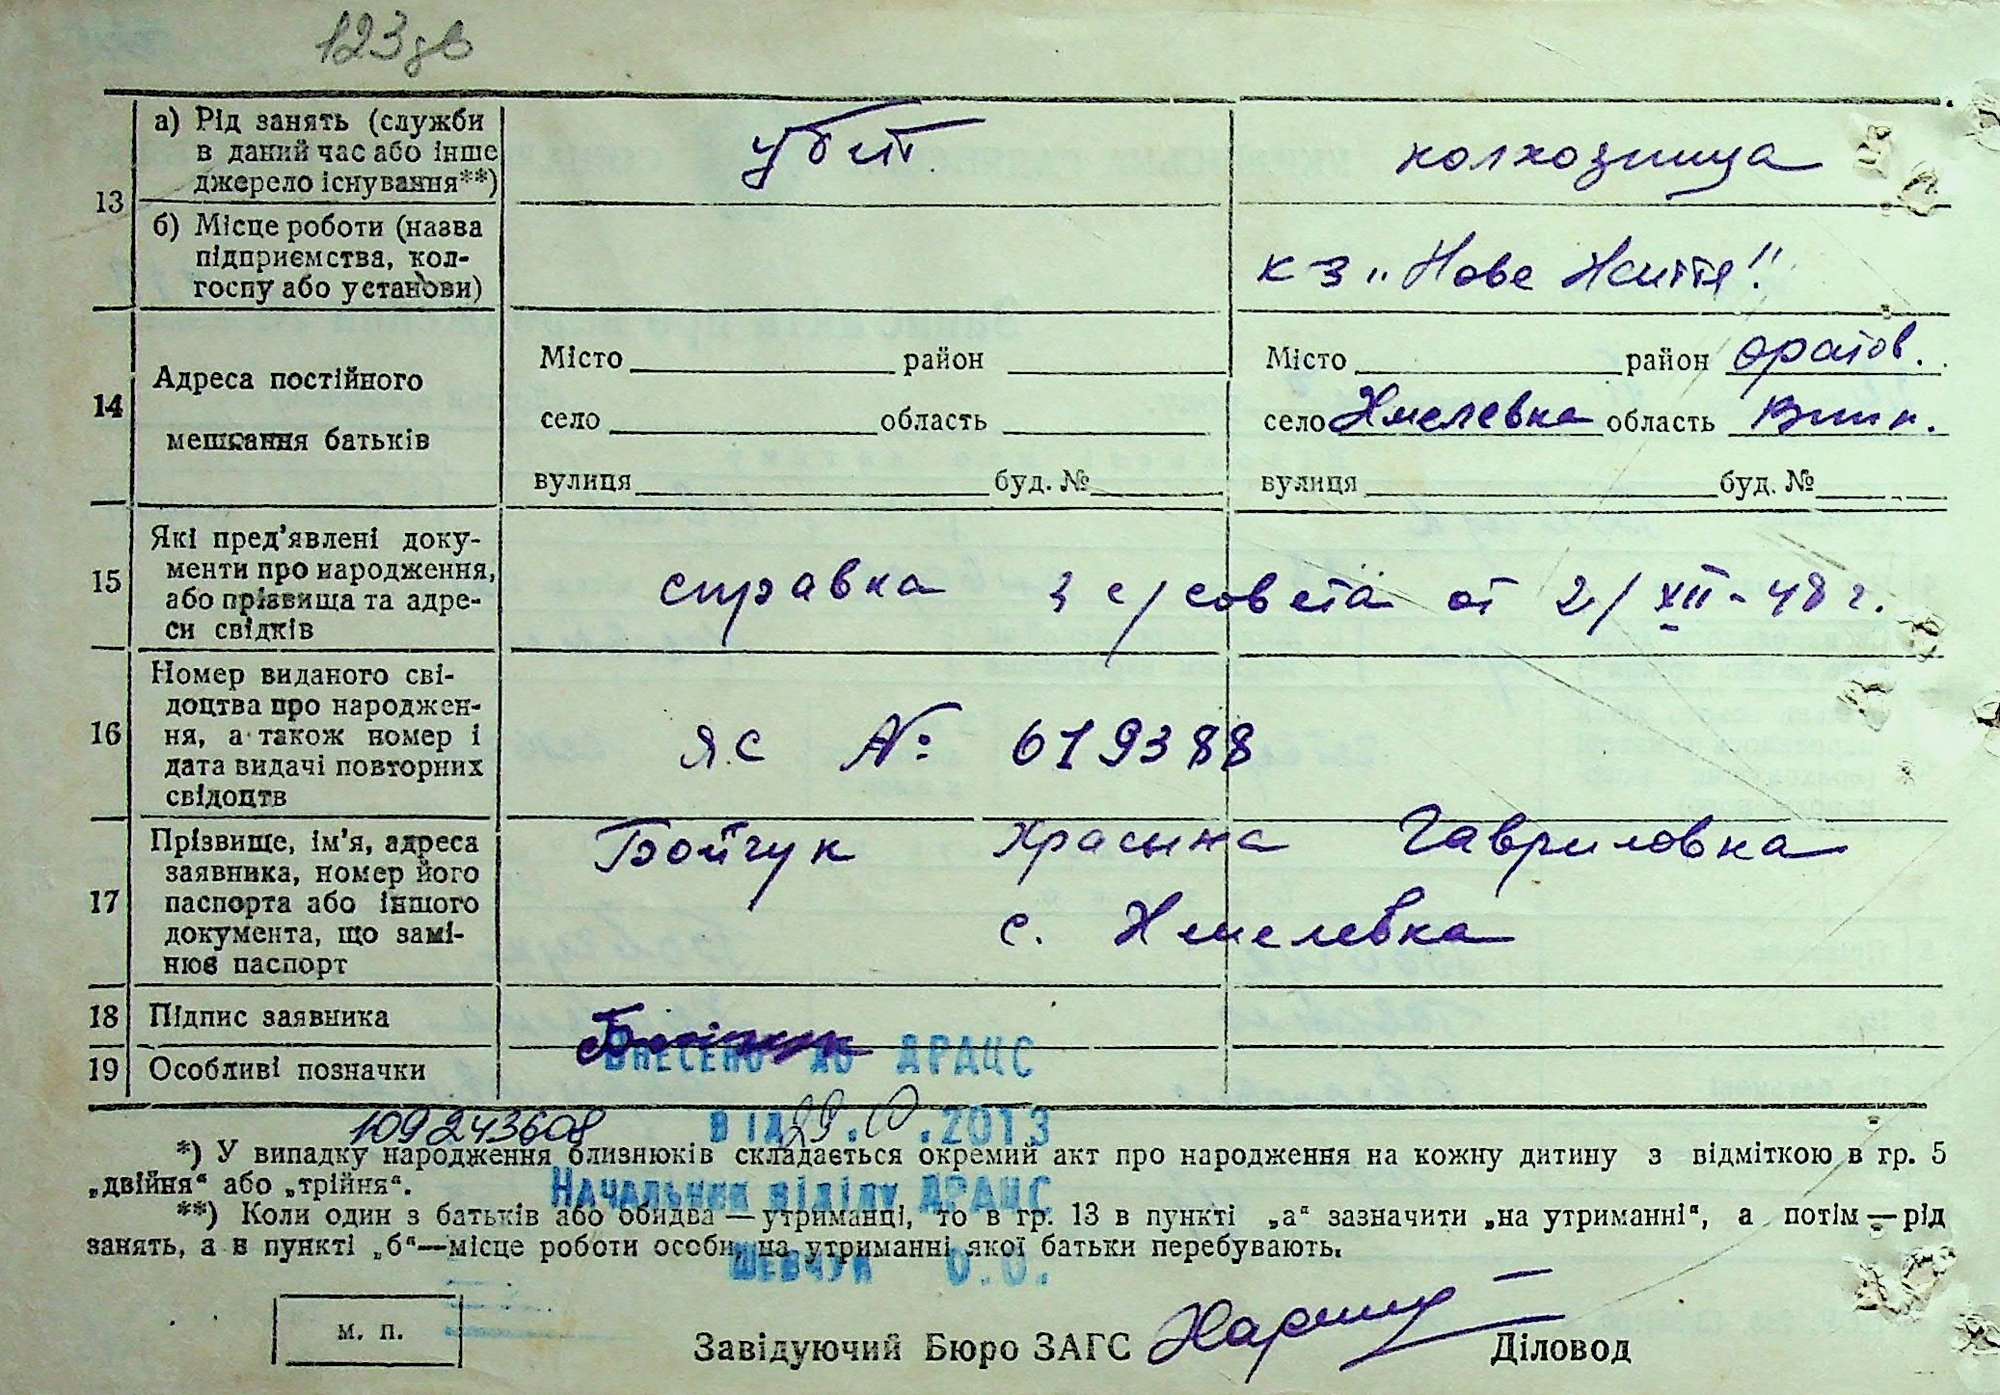 123 зв
13
а) Рід занять (служби
в даний час або інше
джерело існування**)
убит
колхозница
б) Місце роботи (назва
підприємства, кол-
госпу або установи)
к-з „Нове Життя"
14
Адреса постійного
мешкання батьків
Місто район
село область
вулиця буд. №
Місто район Оратов.
село Хмелевка область Винн.
вулиця буд. №
15
Які пред'явлені доку-
менти про народження,
або прізвища та адре-
си свідків
справка з с/совета от 2/XII-48 г.
16
Номер виданого сві-
доцтва про народжен-
ня, а також номер і
дата видачі повторних
свідоцтв
ЯС № 619388
17
Прізвище, ім'я, адреса
заявника, номер його
паспорта або іншого
документа, що замі-
нює паспорт
Бойчук Красына Гавриловка
с. Хмелевка
18 Підпис заявника
19 Особливі позначки
Внесено до ДРАЦС
109243608
від 29. .2013
*) У випадку народження близнюків складається окремий акт про народження на кожну дитину з відміткою в гр. 5
„двійня“ або „трійня“.
Начальник відділу ДРАЦС
**) Коли один з батьків або обидва — утриманці, то в гр. 13 в пункті „а“ зазначити „на утриманні“, а потім — рід
занять, а в пункті „б“ — місце роботи особи, на утриманні якої батьки перебувають.
Шевчук О.О.
м. п.
Завідуючий Бюро ЗАГС
Діловод